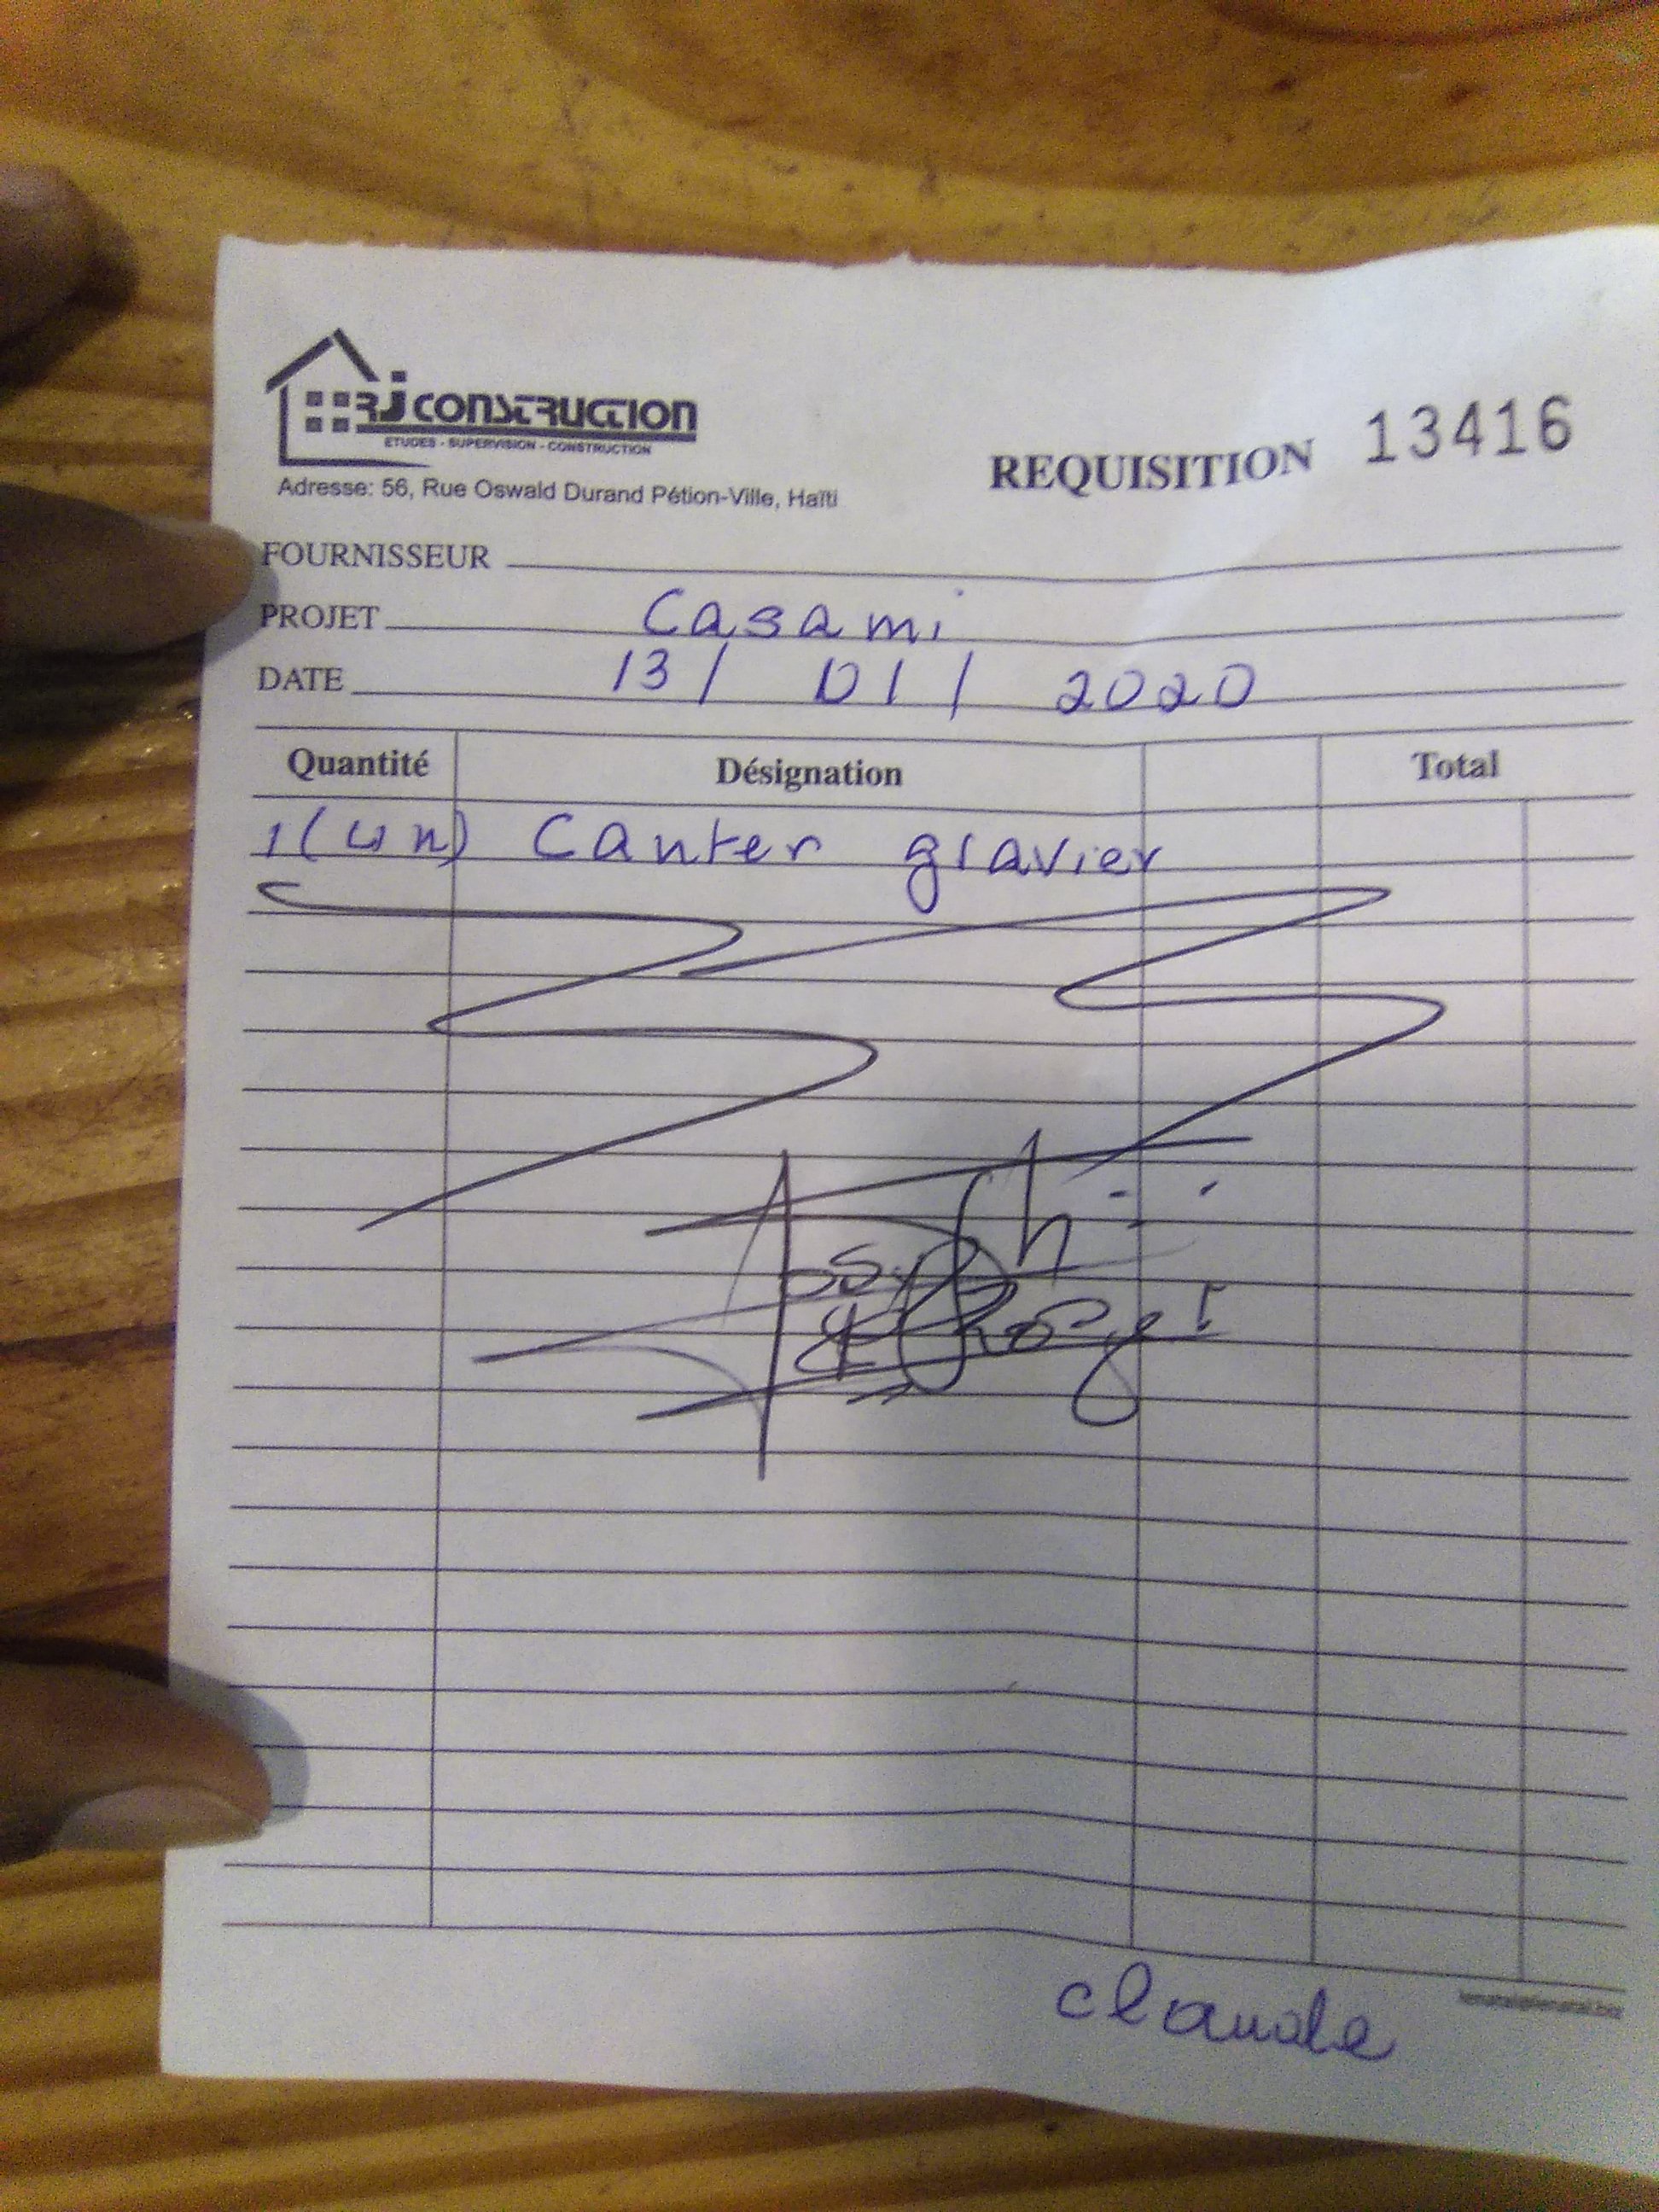 RJ CONSTRUCTION
ETUDES - SUPERVISION - CONSTRUCTION
Adresse: 56, Rue Oswald Durand Pétion-Ville, Haïti
REQUISITION 13416
FOURNISSEUR
PROJET Casami
DATE 13/ 01/ 2020
Quantité Désignation Total
1(un) Canter gravier
claude